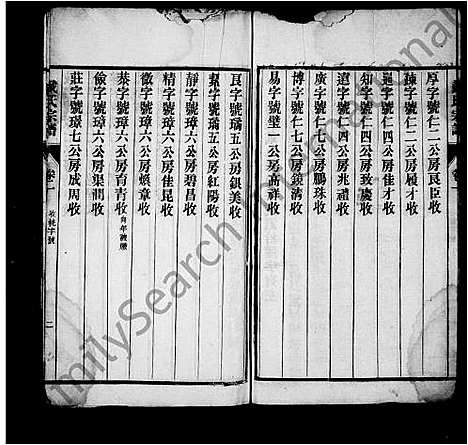 厚字號仁二公房良臣收
疎字號仁二公房履才收
週字號仁四公房佳才收
知字號仁四公房致慶收
遠字號仁四公房兆禮收
廣字號仁七公房鵬珠收
博字號仁七公房鏡清收
易字號璧一公房高祥收
良字號璠五公房銀美收
絜字號璠五公房紅陽收
靜字號璋六公房碧昌收
精字號璋六公房佳昆收
微字號璋六公房煥章收
恭字號璋六公房育青收
儉字號璋六公房渠潤收
莊字號璋七公房成周收
戴氏宗譜
卷一
收執字號
二
FamilySearch International